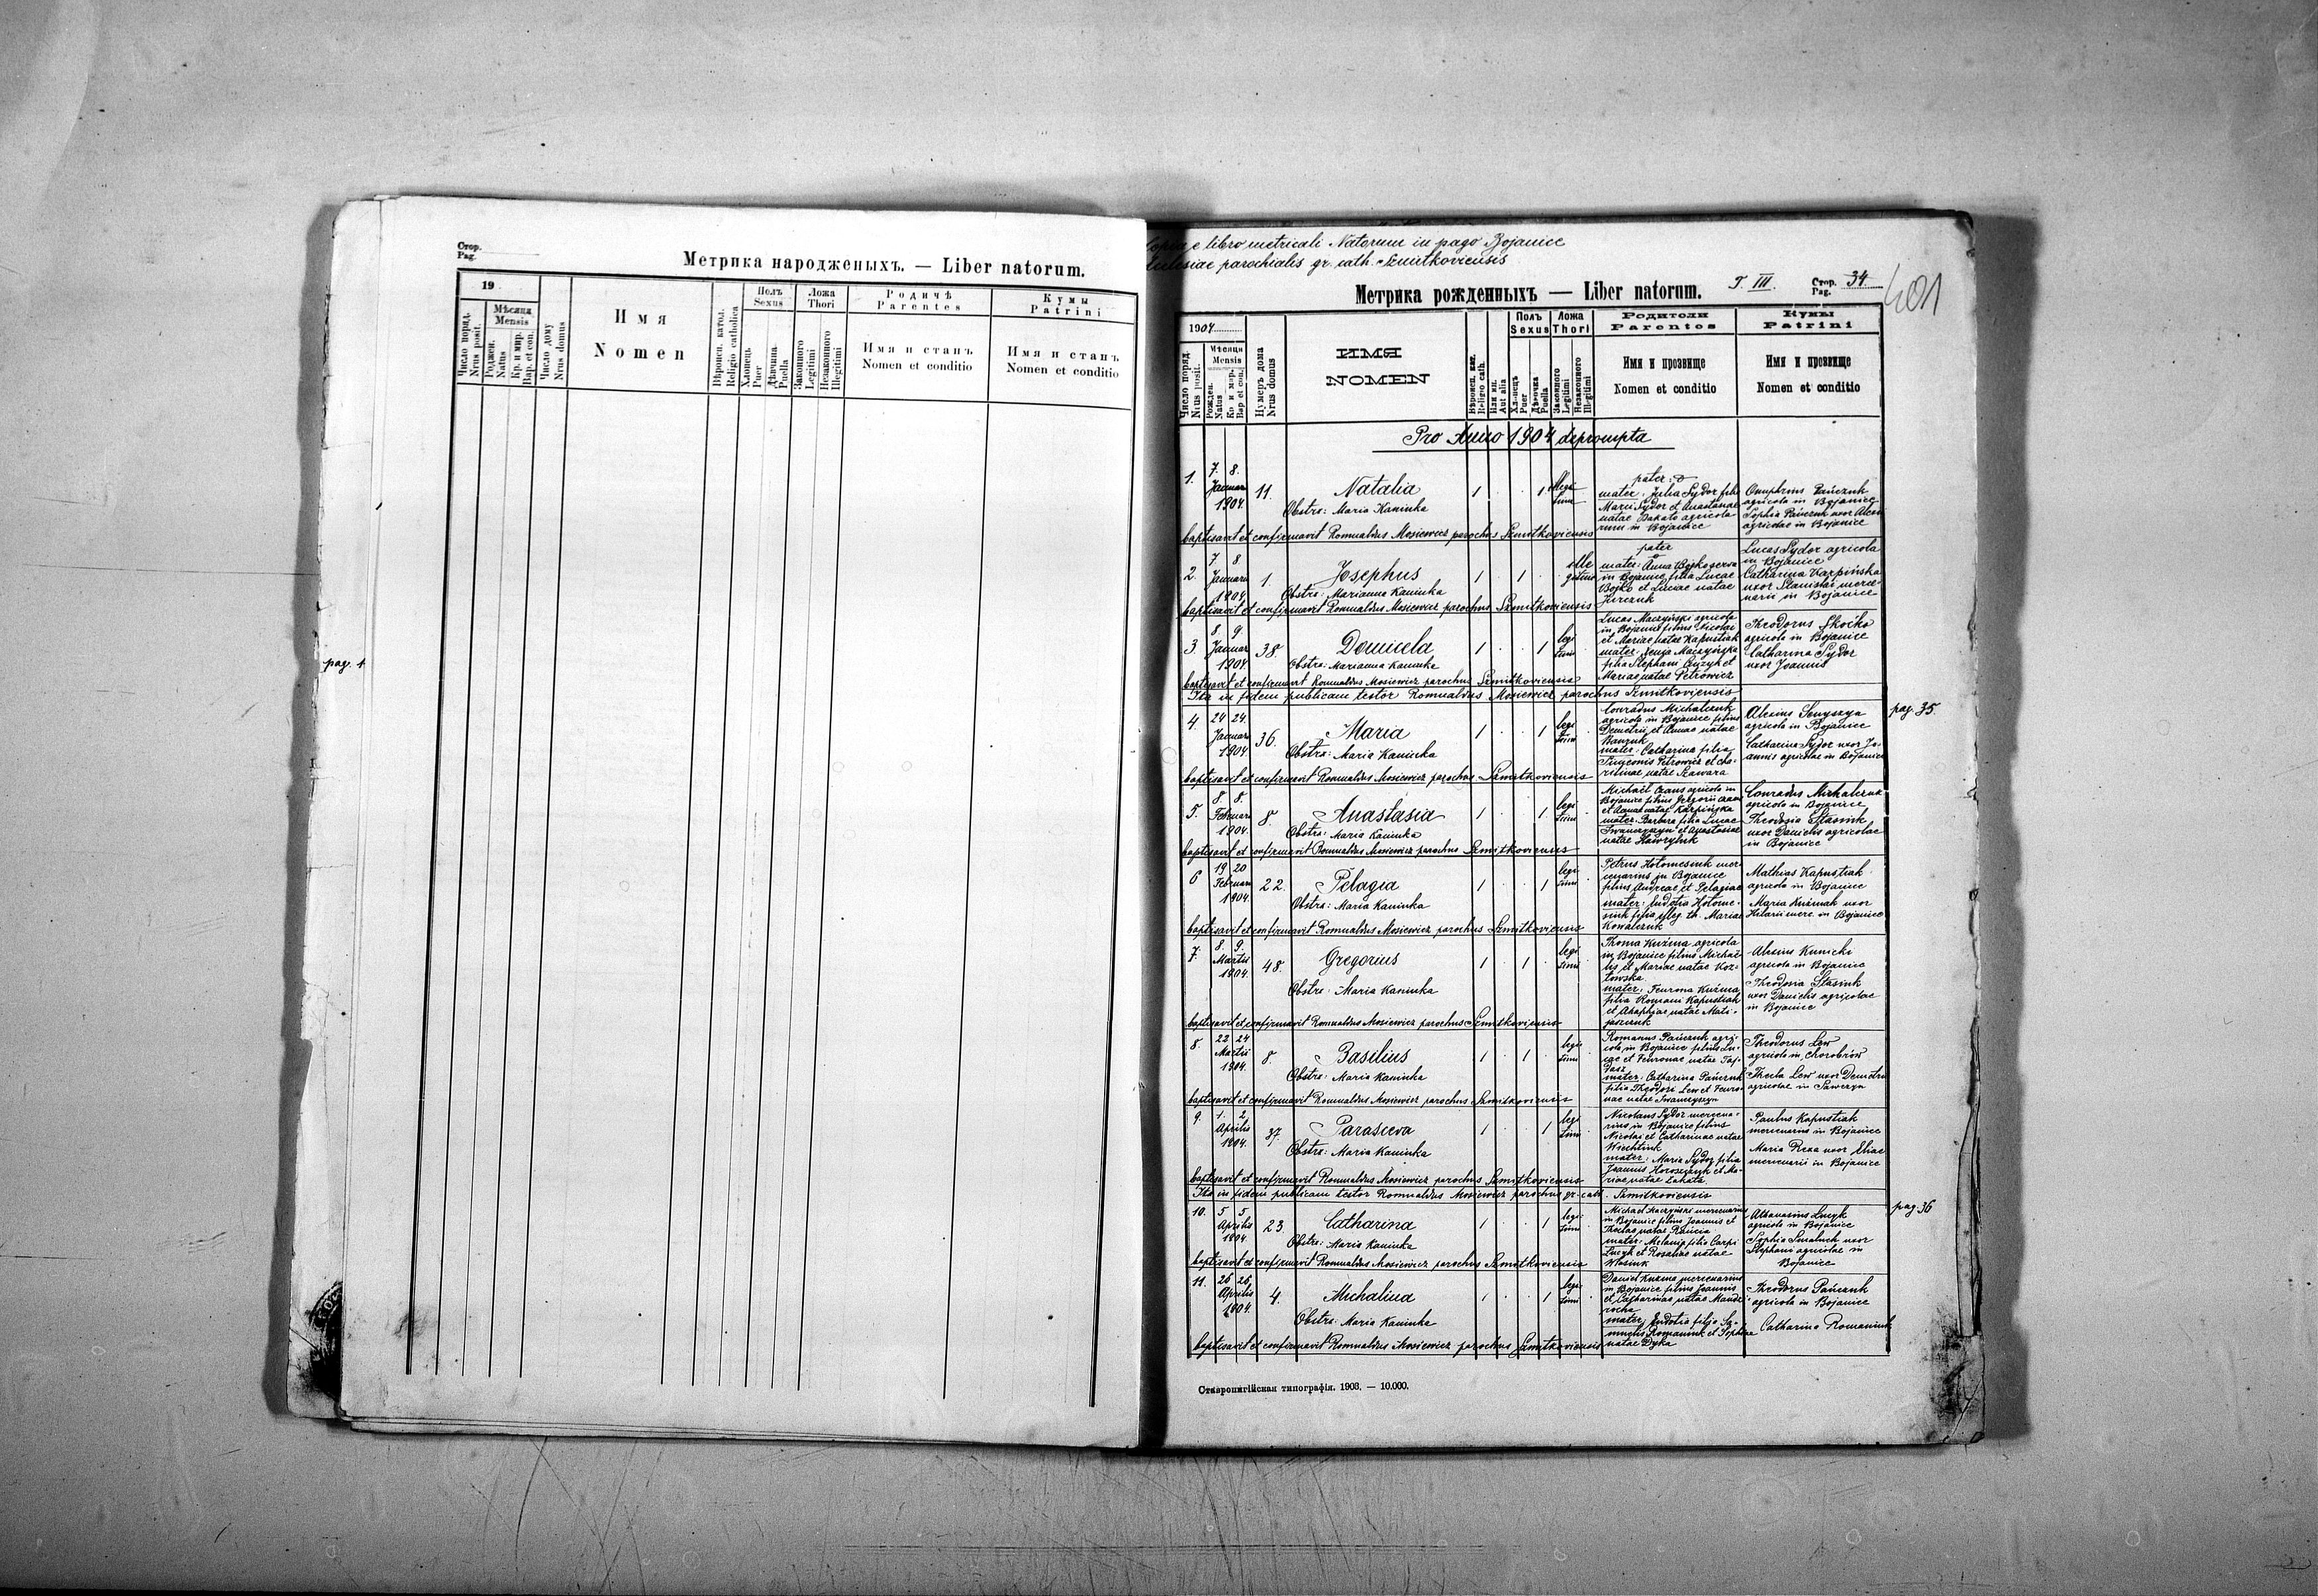 Стор.
Pag.
Метрика народженыхъ. — Liber natorum.
19
Число поряд.
Nrus posit.
Мѣсяца
Mensis
Рoджен.
Natus
Кр. и мир.
Bap. et con.
Число дому
Nrus domus
Имя
Nomen
Вѣроисп. катол.
Religio catholica
Полъ
Sexus
Хлопець
Puer
Дѣвчина
Puella
Ложа
Thori
Законного
Legitimi
Незаконного
Illegitimi
Родичѣ
Parentes
Имя и станъ
Nomen et conditio
Кумы
Patrini
Имя и станъ
Nomen et conditio
pag. 1
e libro metricali Natorum in pago Bojanice
parochialis gr. cath. Szmitkoviensis
Метрика рожденныхъ — Liber natorum.
T. III.
Стор.
Pag. 34
401
1904
Число поряд.
Nrus posit.
Мѣсяца
Mensis
Рожден.
Natus
Кр. и мир.
Bap et con.
Нумеръ дома
Nrus domus
ИМЯ
NOMEN
Вѣроисп. кат.
Religio cath.
Или ин.
Aut alia
Полъ
Sexus
Хлопецъ
Puer
Дѣвочка
Puella
Ложа
Thori
Законного
Legitimi
Незаконного
Illegitimi
Родители
Parentes
Имя и прозвище
Nomen et conditio
Кумы
Patrini
Имя и прозвище
Nomen et conditio
Pro Anno 1904 deprompta
1. 7. 8. Januar 1904 11. Natalia 1 1 illegitimi
Obstrx: Maria Kaninka
pater:
mater: Julia Sydor filia
Marci Sydor et Anastasiae
natae Bakato agricola
rum in Bojanice
Onuphrius Pańczuk
agricola in Bojanice
Sophia Pańczuk uxor
agricolae in Bojanice
baptisavit et confirmavit Romualdus Mosiewicz parochus Szmitkoviensis
2. 7 8 Januar 1904 1. Josephus 1 1 illegitimi
Obstrx: Marianna Kaninka
pater
mater: Anna Bojko serva
in Bojanice filia Lucae
Bojko et Luciae natae
Lucas Sydor agricola
in Bojanice
Catharina Karpińska
uxor Stanislai merce-
narii in Bojanice
baptisavit et confirmavit Romualdus Mosiewicz parochus Szmitkoviensis
3. 8. 9. Januar 1904 38. Domicela 1 1 legitimi
Obstrx: Marianna Kaninka
Lucas Maczyński agricola
in Bojanice filius Nicolai
et Mariae natae Kapustiak
mater: Xenia Maczyńska
filia Stephani et
Mariae natae Petrowicz
Theodorus Skoćko
agricola in Bojanice
Catharina Sydor
uxor Joannis
baptisavit et confirmavit Romualdus Mosiewicz parochus Szmitkoviensis
Ita in fidem publicam testor Romualdus Mosiewicz parochus Szmitkoviensis
pag. 35.
4. 24 24. Januar 1904 36. Maria 1 1 legitimi
Obstrx: Maria Kaninka
Conradus Michalczuk
agricola in Bojanice filius
Demetrii et Annae natae
mater: Catharina filia
Petrowicz et
natae Szawara
Alexius Senyszyn
agricola in Bojanice
Catharina Sydor uxor Jo-
annis agricolae in Bojanice
baptisavit et confirmavit Romualdus Mosiewicz parochus Szmitkoviensis
5. 8. 8. Februar 1904. 8. Anastasia 1 1 legitimi
Obstrx: Maria Kaninka
Michaël agricola in
Bojanice filius Gregorii
et Annae natae Karpińska
mater: Barbara filia Lucae
Iwanczyszyn et Anastasiae
natae Hawryluk
Conradus Michalczuk
agricola in Bojanice
Theodosia Stasiuk
uxor Danielis agricolae
in Bojanice
baptisavit et confirmavit Romualdus Mosiewicz parochus Szmitkoviensis
6 19 20 Februar 1904. 22. Pelagia 1 1 legitimi
Obstrx: Maria Kaninka
Petrus Hołomesiuk mer
cenarius in Bojanice
filius Andreae et Pelagiae
mater: Eudoxia Hołome-
siuk filia illeg. th. Mariae
Kowalczuk
Mathias Kapustiak
agricola in Bojanice
Maria Kuźmak uxor
Hilarii merc. in Bojanice
baptisavit et confirmavit Romualdus Mosiewicz parochus Szmitkoviensis
7. 8. 9. Martii 1904. 48. Gregorius 1 1 legitimi
Obstrx: Maria Kaninka
Thoma Kuźma agricola
in Bojanice filius Michaë-
lis et Mariae natae Koz-
łowska
mater: Feurona Kuźma
filia Romani Kapustiak
et Ahaphiae natae Mati-
jaszczuk
Alexius Kunicki
agricola in Bojanice
Theodosia Stasiuk
uxor Danielis agricolae
in Bojanice
baptisavit et confirmavit Romualdus Mosiewicz parochus Szmitkoviensis
8. 23 24 Martii 1904. 8. Basilius 1 1 legitimi
Obstrx: Maria Kaninka
Romanus Pańczuk agri-
cola in Bojanice filius Lu-
cae et Feuronae natae
mater: Catharina Pańczuk
filia Theodori Lew et Feuro-
nae natae Iwanczyszyn
Theodorus Lew
agricola in Chorobrów
Thecla Lew uxor Demetrii
agricolae in Sawczyn
baptisavit et confirmavit Romualdus Mosiewicz parochus Szmitkoviensis
9. 1. 2 Aprilis 1904. 37. Parasceva 1 1 legitimi
Obstrx: Maria Kaninka
Nicolaus Sydor mercena-
rius in Bojanice filius
Nicolai et Catharinae natae
mater: Maria Sydor filia
Joannis et Ma-
riae natae Łahata
Paulus Kapustiak
mercenarius in Bojanice
Maria Rexa uxor Eliae
mercenarii in Bojanice
baptisavit et confirmavit Romualdus Mosiewicz parochus Szmitkoviensis
Ita in fidem publicam testor Romualdus Mosiewicz parochus gr. cath. Szmitkoviensis
pag. 36
10. 5 5. Aprilis 1904. 23. Catharina 1 1 legitimi
Obstrx: Maria Kaninka
Michael mercenarius
in Bojanice filius Joannis et
Theclae natae
mater: Melania filia Carpi
Łucyk et Rosaliae natae
Włosiuk
Athanasius Łucyk
agricola in Bojanice
Sophia Smaluch uxor
Stephani agricolae in
Bojanice
baptisavit et confirmavit Romualdus Mosiewicz parochus Szmitkoviensis
11. 26 26, Aprilis 1904. 4. Michalina 1 1 legitimi
Obstrx: Maria Kaninka
Daniel Kuźma mercenarius
in Bojanice filius Joannis
et Catharinae natae
mater, Eudoxia filia Sa-
muelis Romaniuk et Sophiae
natae Dyka
Theodorus Pańczuk
agricola in Bojanice
Catharina Romaniuk
baptisavit et confirmavit Romualdus Mosiewicz parochus Szmitkoviensis
Ставропигійская типографія. 1903. — 10.000.